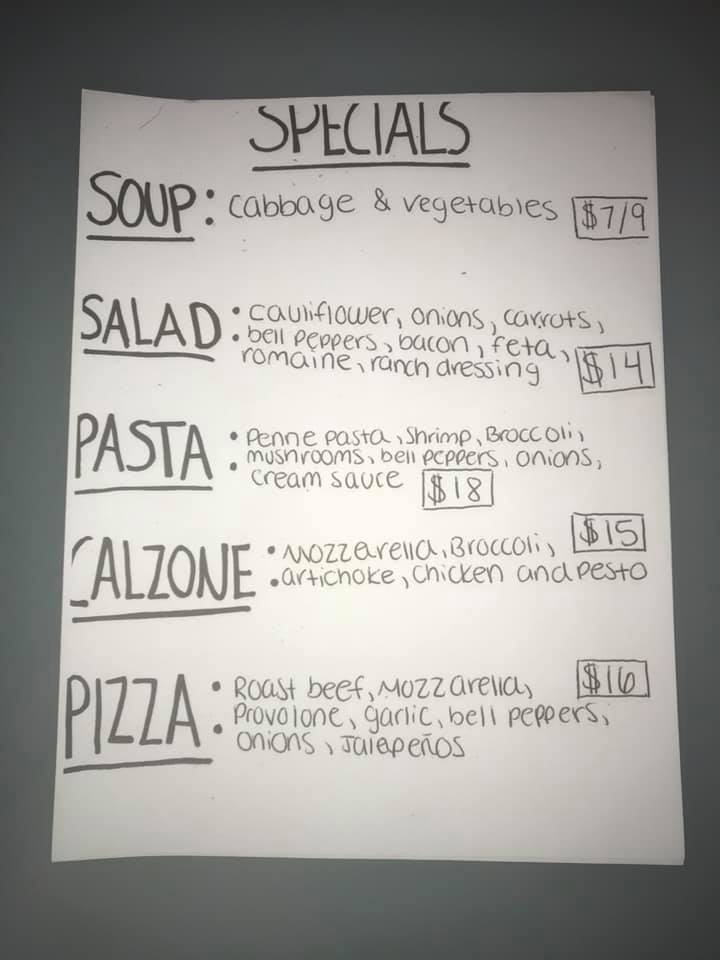 SPECIALS
SOUP: cabbage & vegetables $7/9
SALAD: cauliflower, onions, carrots,
bell peppers, bacon, feta,
romaine, ranch dressing $14
PASTA: Penne pasta, Shrimp, Broccoli,
mushrooms, bell peppers, onions,
cream sauce $18
CALZONE: Mozzarella, Broccoli, $15
artichoke, Chicken and Pesto
PIZZA: Roast beef, Mozzarella, $16
Provolone, garlic, bell peppers,
onions, Jalepeños